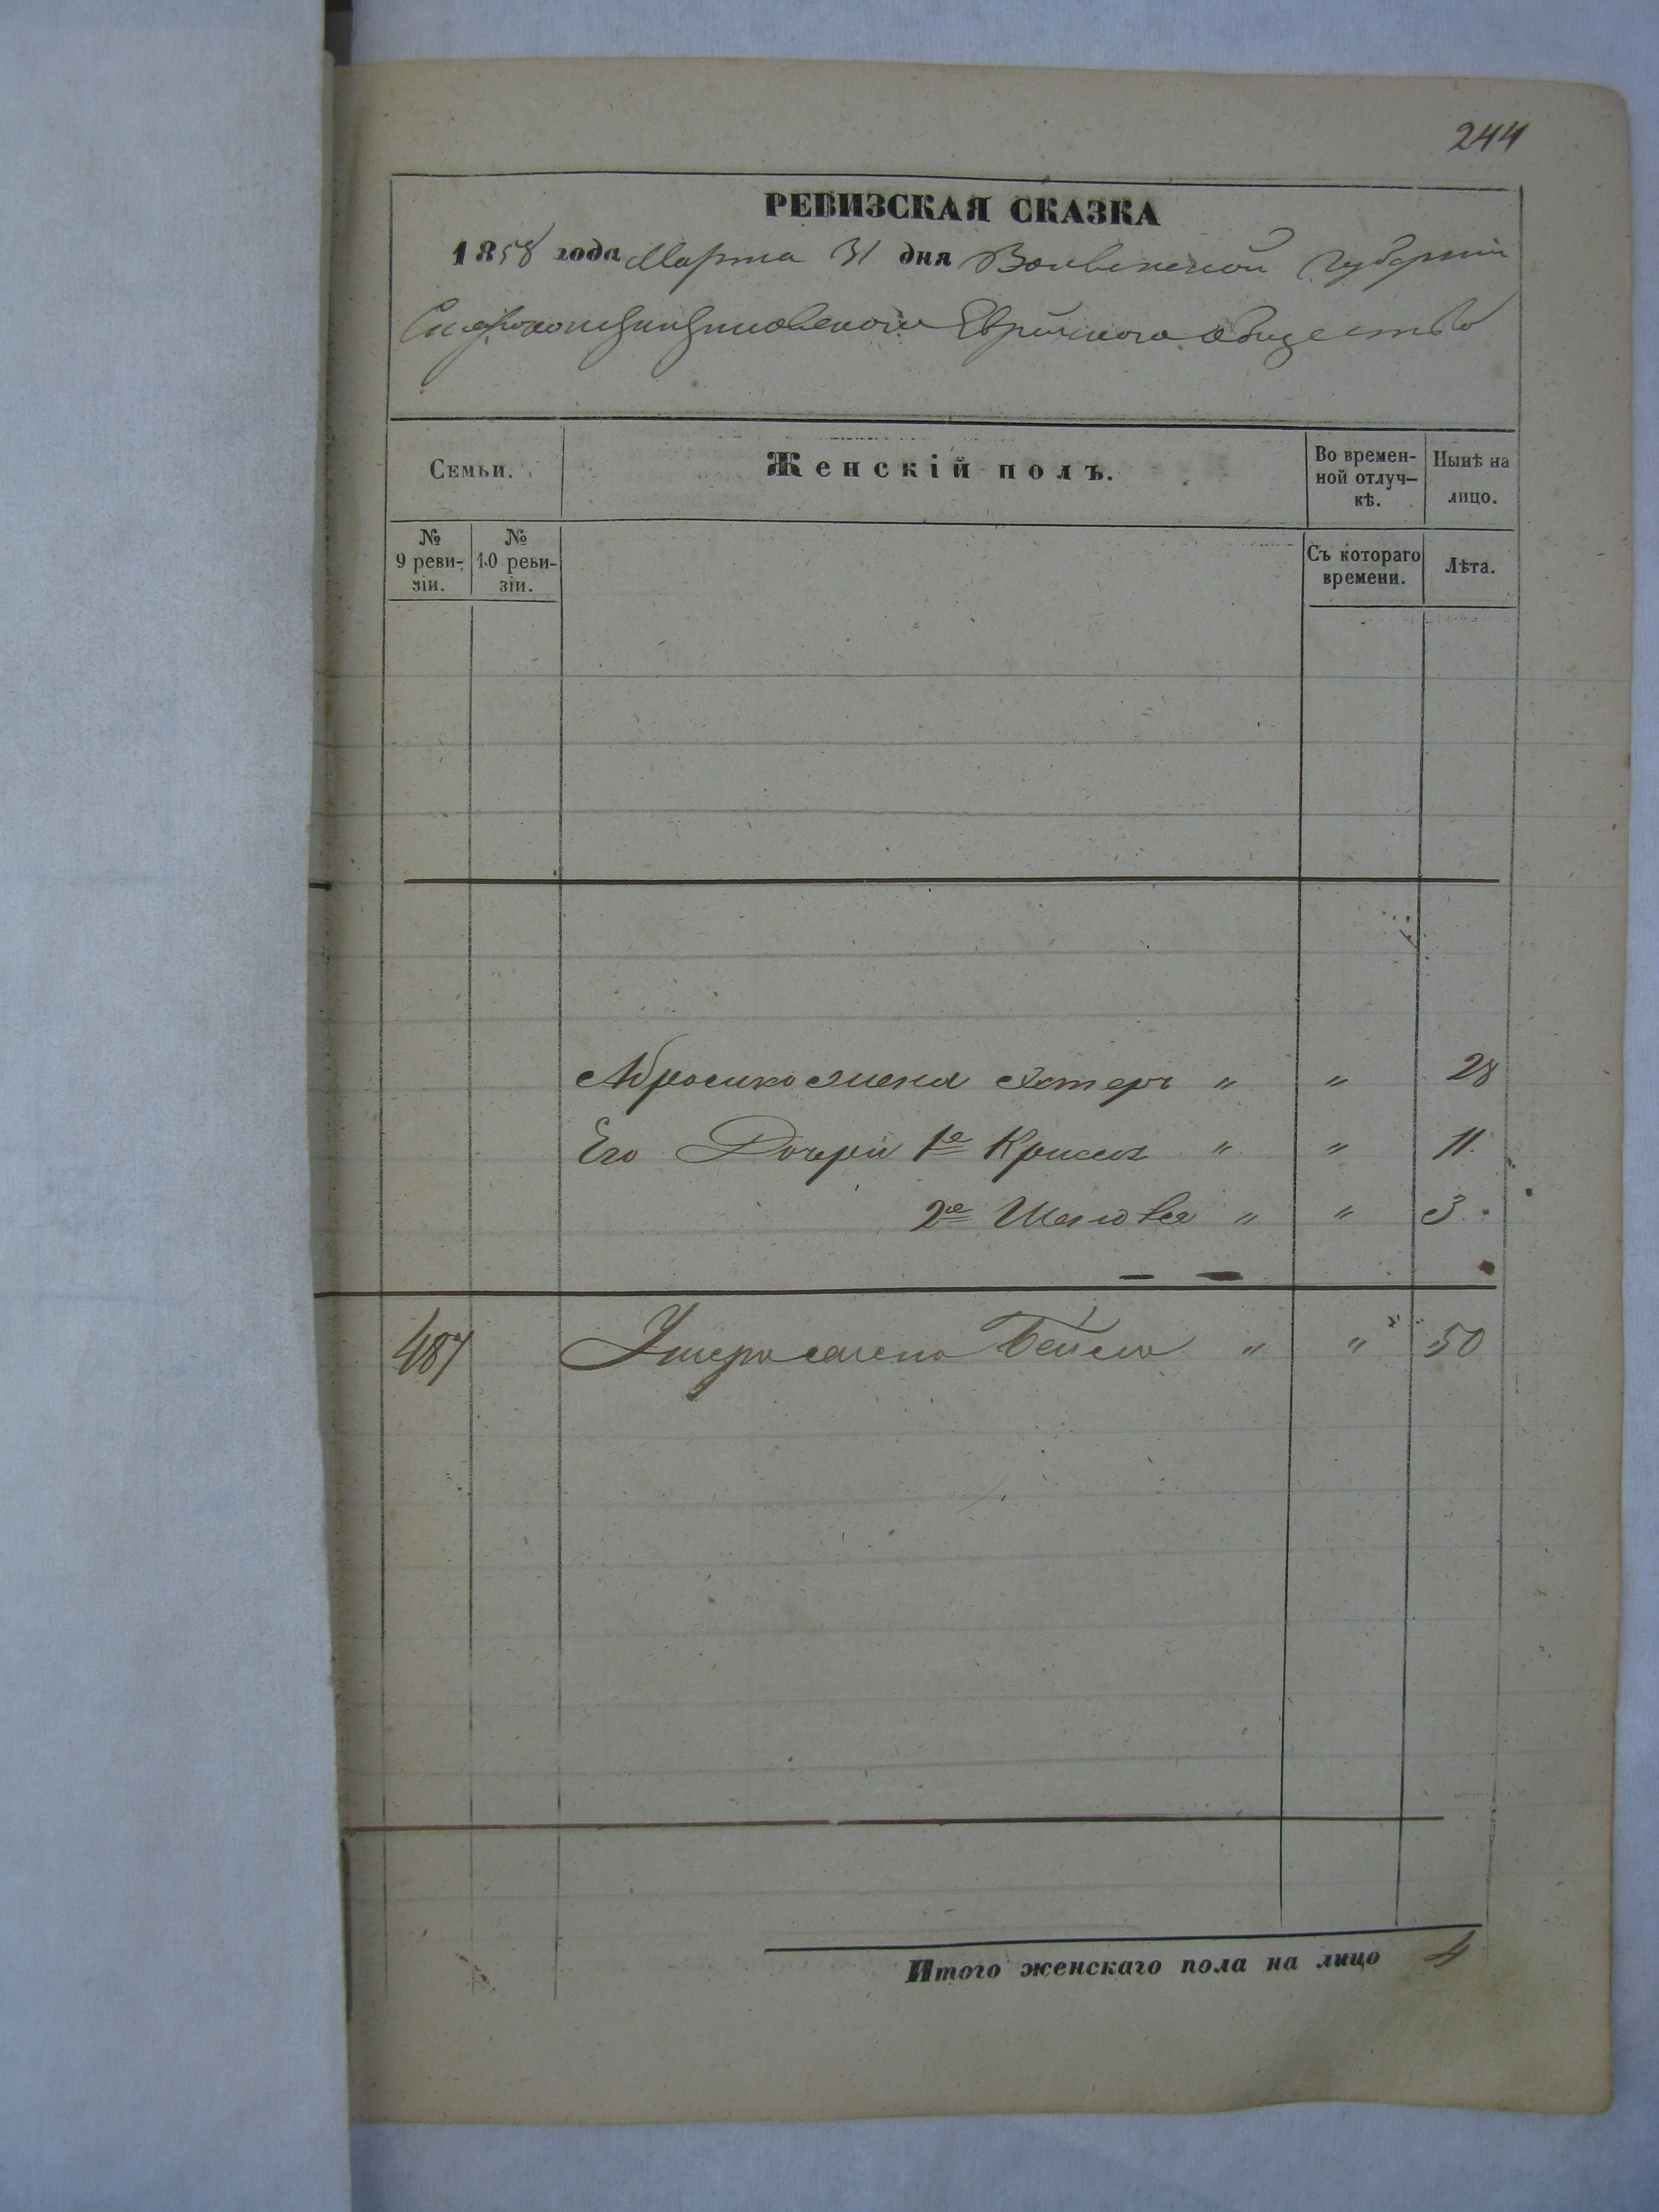 244
РЕВИЗСКАЯ СКАЗКА
1858 года Марта 31 дня Волынской губернии
Староконстантиновского Еврейского общества
Семьи. Женскій полъ. Во времен-ной отлуч-кѣ. Нынѣ на лицо.
№ 9 реви-зіи. № 10 реви-зіи. Съ котораго времени. Лѣта.
жена Эстеръ " " 28
Его Дочери 1я " " 11
2я " " 3
487 жена Бейла " " 50
Итого женскаго пола на лицо 4